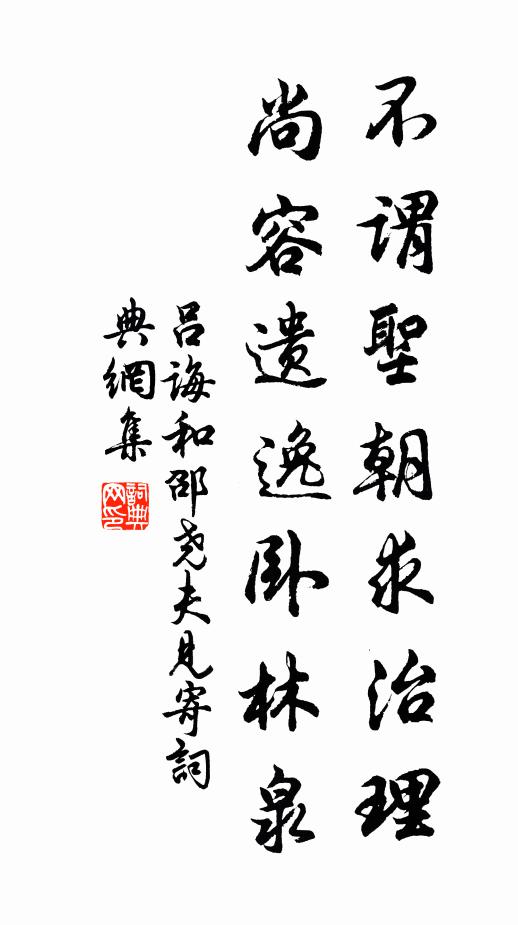 不謂聖朝求治理
尚容遺逸卧林泉
吕誨和邵尧夫見寄詞
典網集
詞典
网印